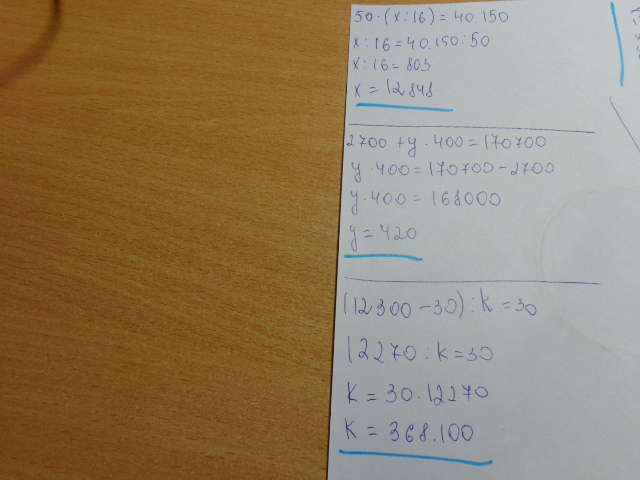 50·(x:16) = 40.150
x:16 = 40.150:50
x:16 = 803
x = 12848
2700 + y·400 = 170700
y·400 = 170700 - 2700
y·400 = 168000
y = 420
(12300 - 30):k = 30
12270:k = 30
k = 30·12270
k = 368.100